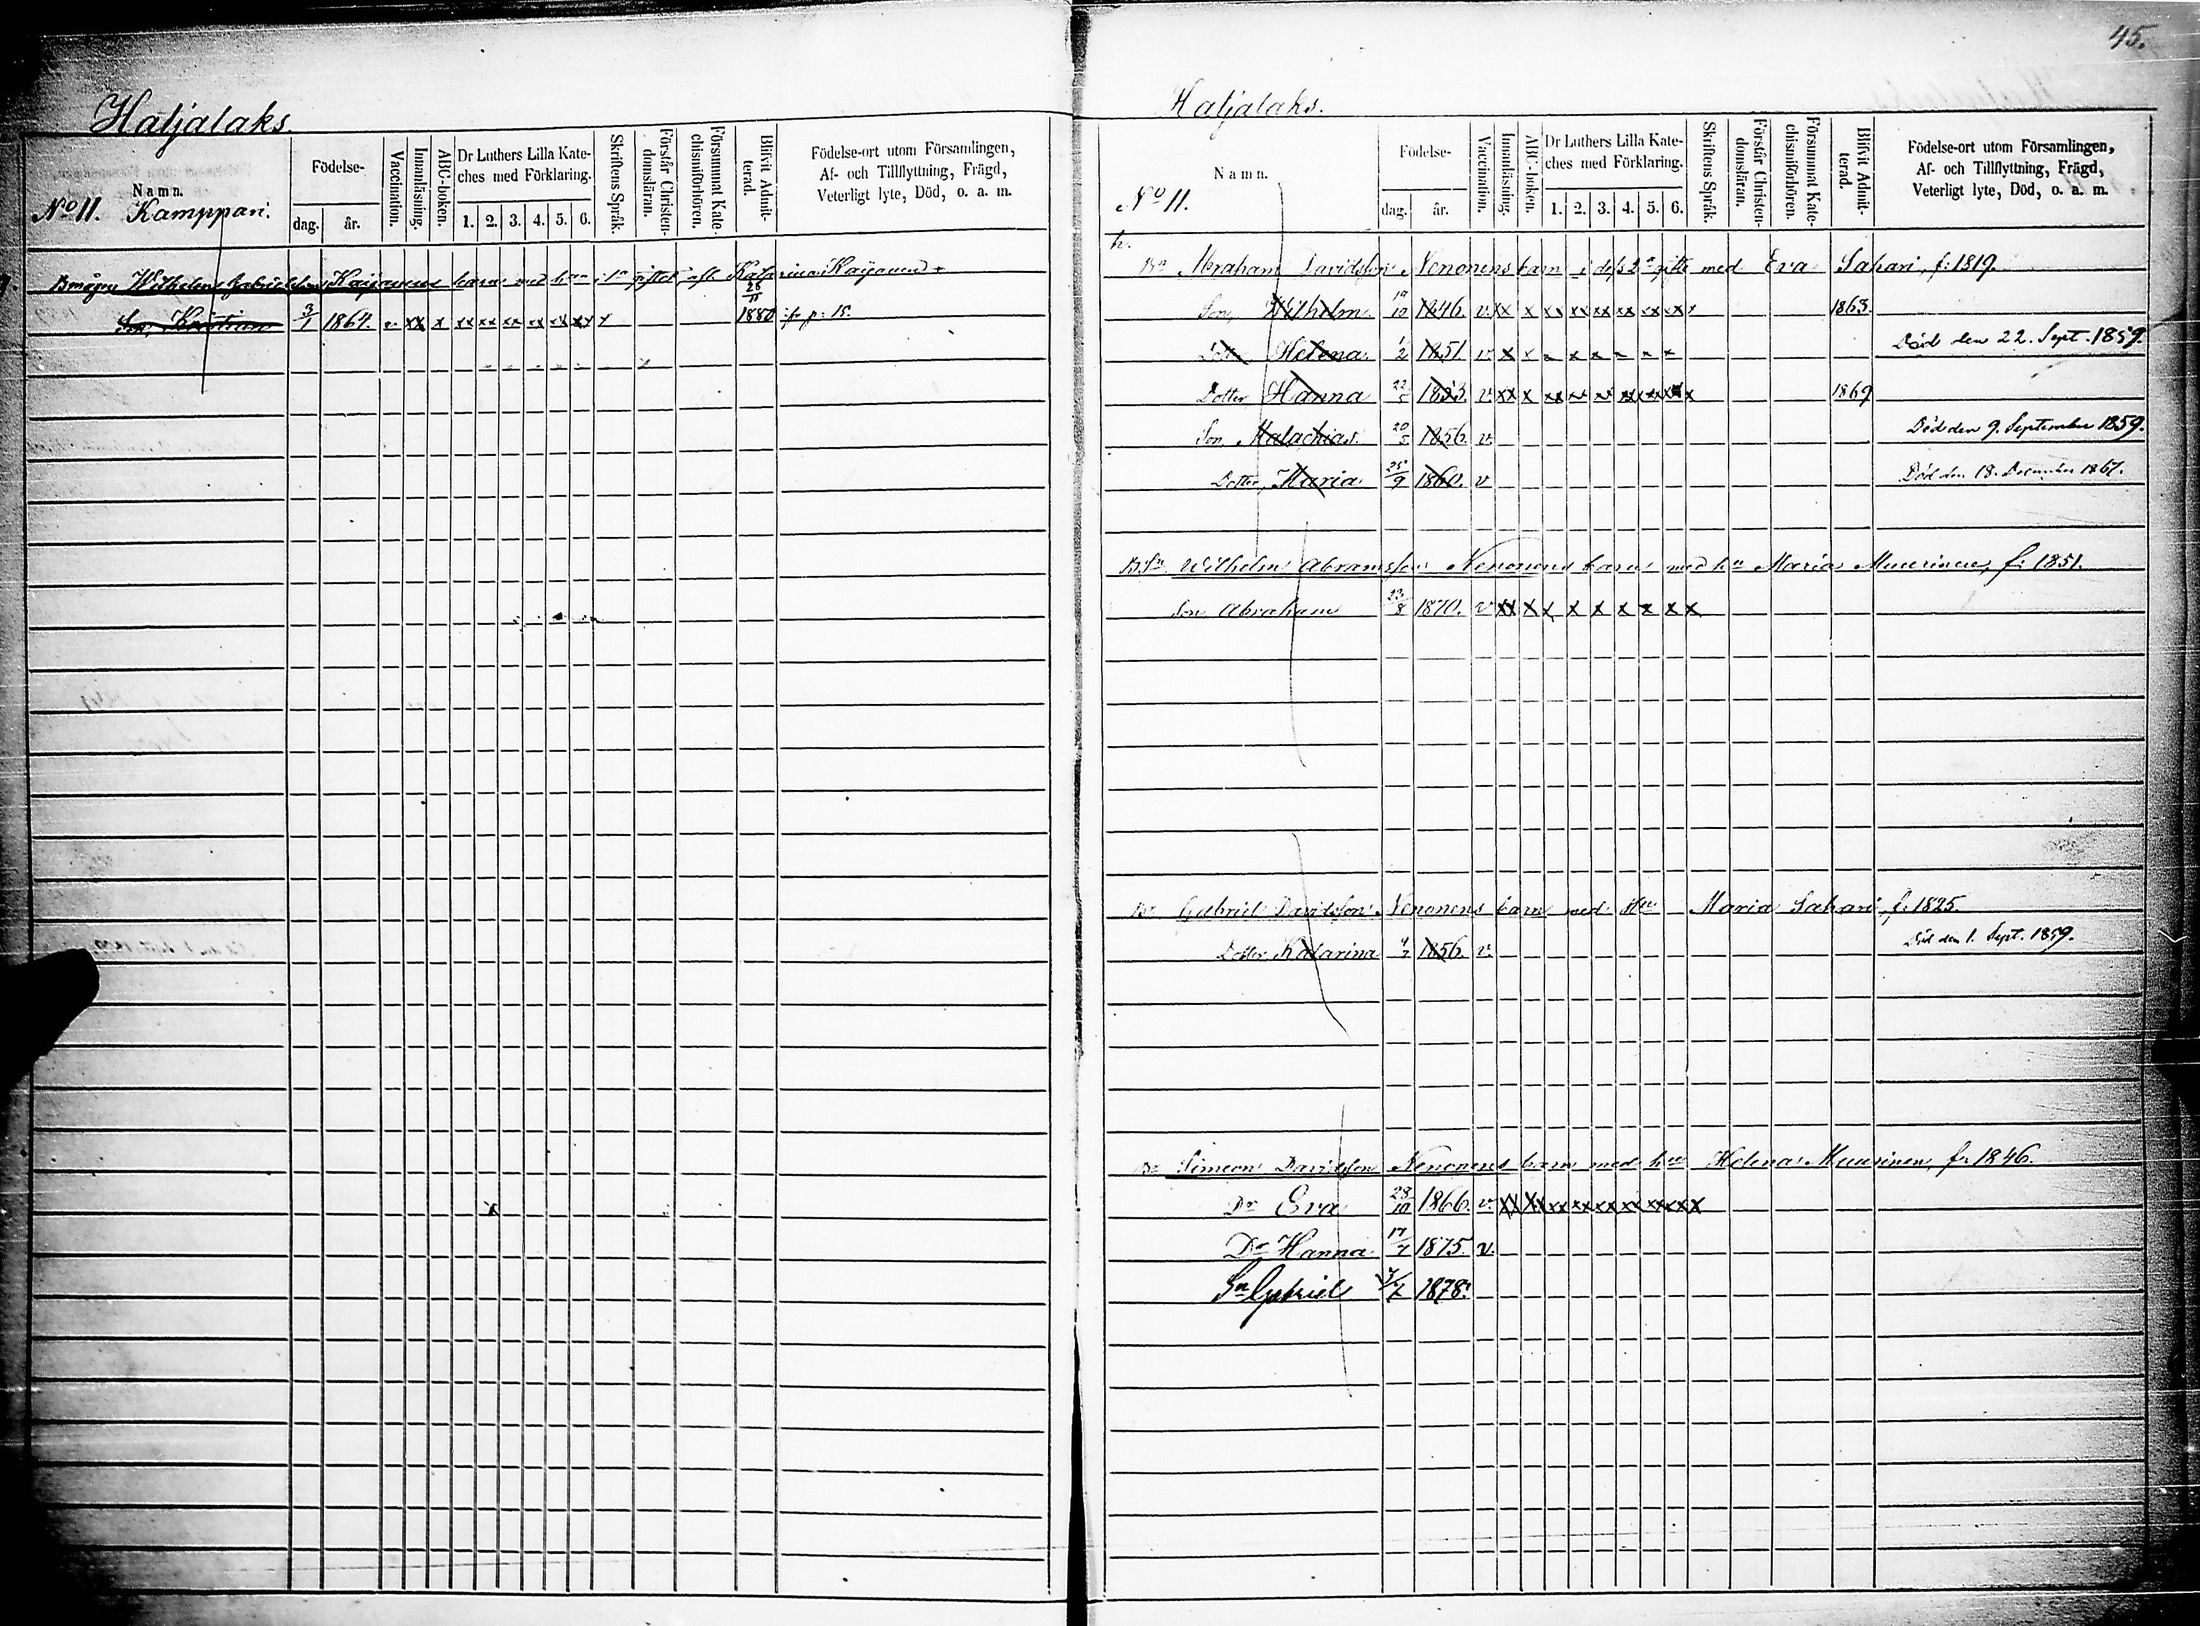 45.
Hatjalaks.
Namn.
Födelse-
dag.
år.
Vaccination.
Innanläsning.
ABC-boken.
Dr Luthers Lilla Kate-
ches med Förklaring.
1. 2. 3. 4. 5. 6.
Skriftens Språk.
Förstår Christen-
domsläran.
Försummat Kate-
chismiförhören.
Blifvit Admit-
terad.
Födelse-ort utom Församlingen,
Af- och Tillflyttning, Frägd,
Veterligt lyte, Död, o. a. m.
No 11. Kamppari.
Wilhelm Gabrielsson Kaijanens barn med hu i 1a giftet afl. Katarina Kaijanen
Son, Kristian 3/1 1864. v xx x xx xx xx xx xx xx x 28/11 1880 p. 15.
Hatjalaks.
Namn.
Födelse-
dag.
år.
Vaccination.
Innanläsning.
ABC-boken.
Dr Luthers Lilla Kate-
ches med Förklaring.
1. 2. 3. 4. 5. 6.
Skriftens Språk.
Förstår Christen-
domsläran.
Försummat Kate-
chismiförhören.
Blifvit Admit-
terad.
Födelse-ort utom Församlingen,
Af- och Tillflyttning, Frägd,
Veterligt lyte, Död, o. a. m.
No 11.
Abraham Davidsson Nenonens barn i dess 2a gifte med Eva Sahari, f: 1819.
Son, Wilhelm 19/10 1846. v xx x xx xx xx xx xx xx x 1863.
Dotter Helena 1/2 1851 v x x x x x Död den 22. Sept. 1859.
Dotter Hanna 1853. v. xx x xx xx xx xx xx xx x 1869
Son, Malachias. 20/5 1856. v. Död den 9. September 1859.
Dotter, Maria 25/9 1860. v Död den 18. December 1867.
Wilhelm Abramsson Nenonens barn med hu Maria Muurinen, f: 1851.
Son Abraham 23/8 1870. v xx x x x x x x x x
Gabriel Davidsson Nenonens barn med Hu Maria Sahari, f: 1825.
Dotter Katarina 1856. v. Död den 1. Sept. 1859.
Simeon Davidsson Nenonens barn med hu Helena Muurinen, f: 1846.
Dr Eva 28/10 1866. v. xx xx xx xx xx xx xx xx x
Dr Hanna 17/7 1875. v.
Sn Gabriel 1878.